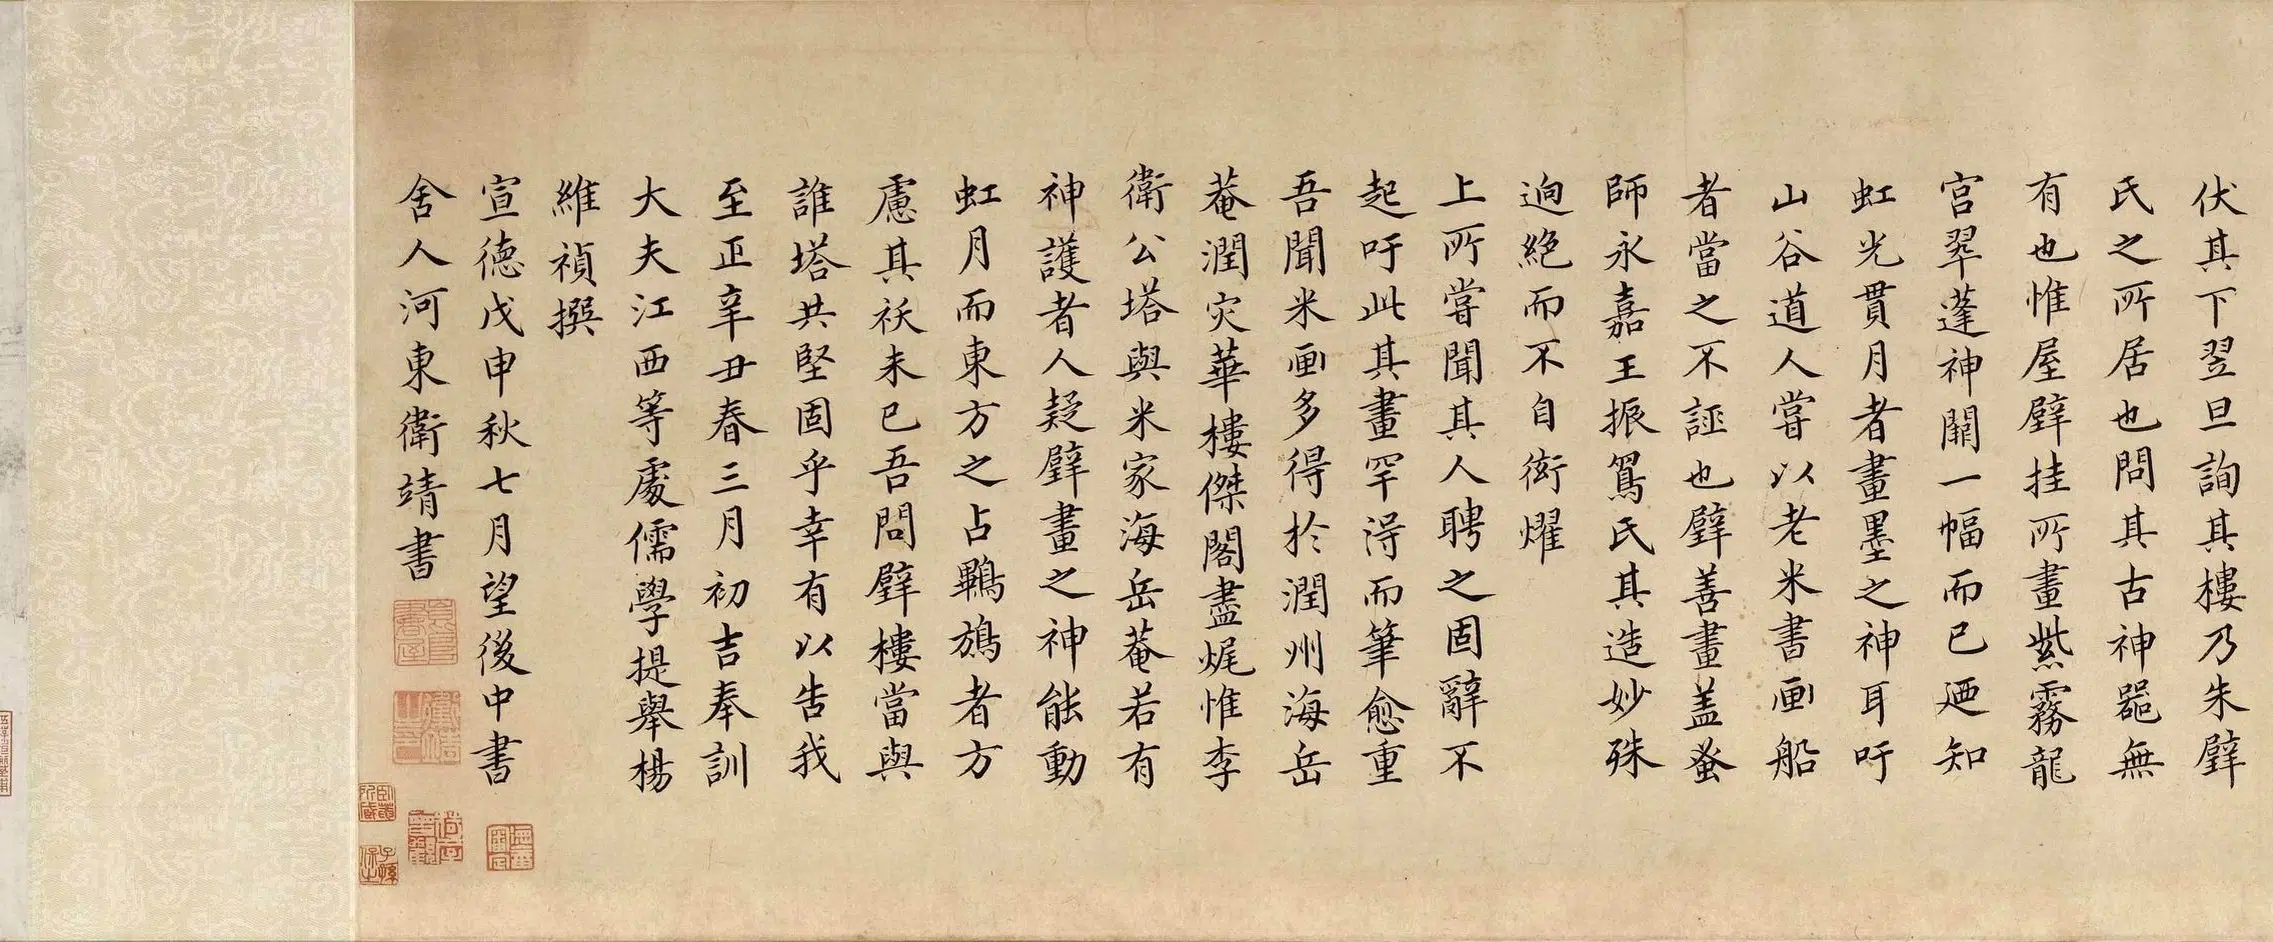 伏其下翌旦詢其樓乃朱壁
氏之所居也問其古神噐無
有也惟屋壁挂所畫紫霧龍
宮翠蓬神關一幅而已廼知
虹光貫月者畫墨之神耳吁
山谷道人嘗以老米書画船
者當之不誣也壁善畫盖蚤
師永嘉王振鵬氏其造妙殊
逈絕而不自衒耀
上所嘗聞其人聘之固辭不
起吁此其畫罕淂而筆愈重
吾聞米画多得於潤州海岳
菴潤灾華樓傑閣盡焜惟李
衛公塔與米家海岳菴若有
神護者人疑壁畫之神能動
虹月而東方之占鶤鴋者方
慮其祆未已吾問壁樓當與
誰塔共堅固乎幸有以告我
至正辛丑春三月初吉奉訓
大夫江西等處儒學提舉楊
維禎撰
宣德戊申秋七月望後中書
舍人河東衛靖書